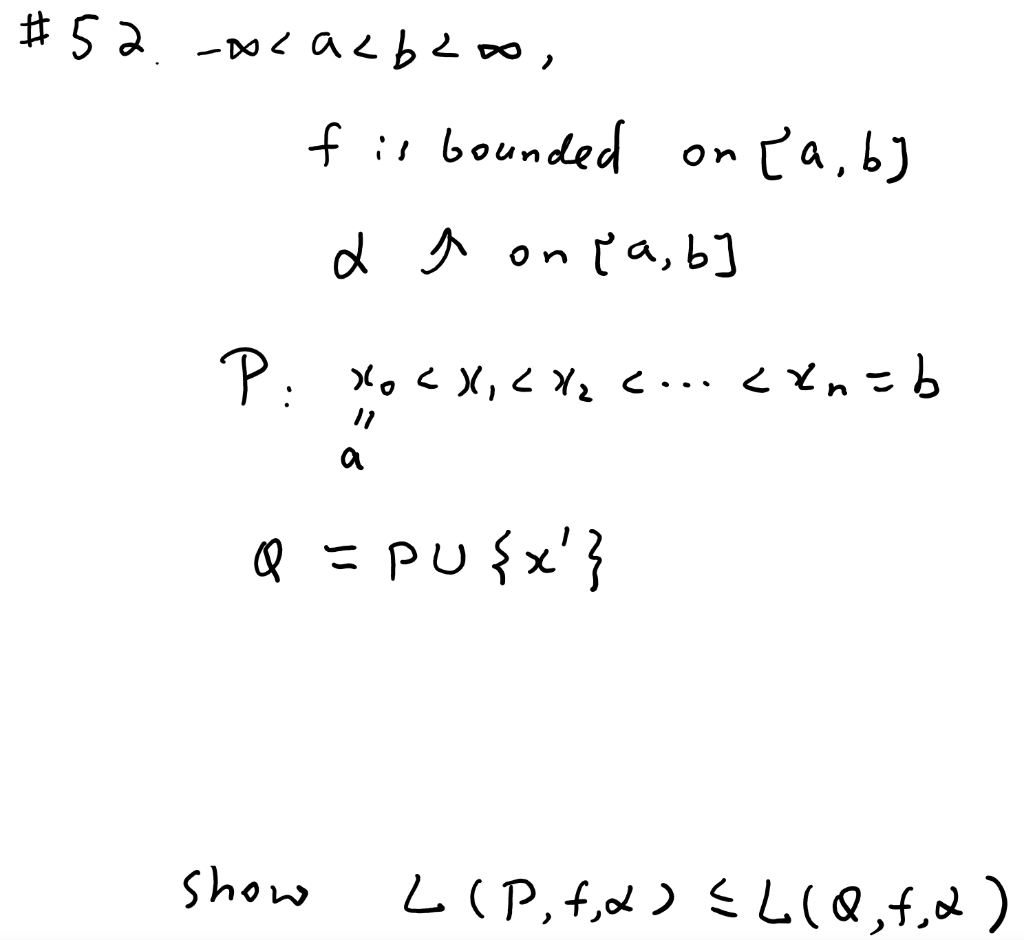 #52. -∞ < a < b < ∞,
f is bounded on [a, b]
α ↑ on [a, b]
P: x₀ < x₁ < x₂ < ... < xₙ = b
"
a
Q = P ∪ {x'}
show L(P, f, α) ≤ L(Q, f, α)